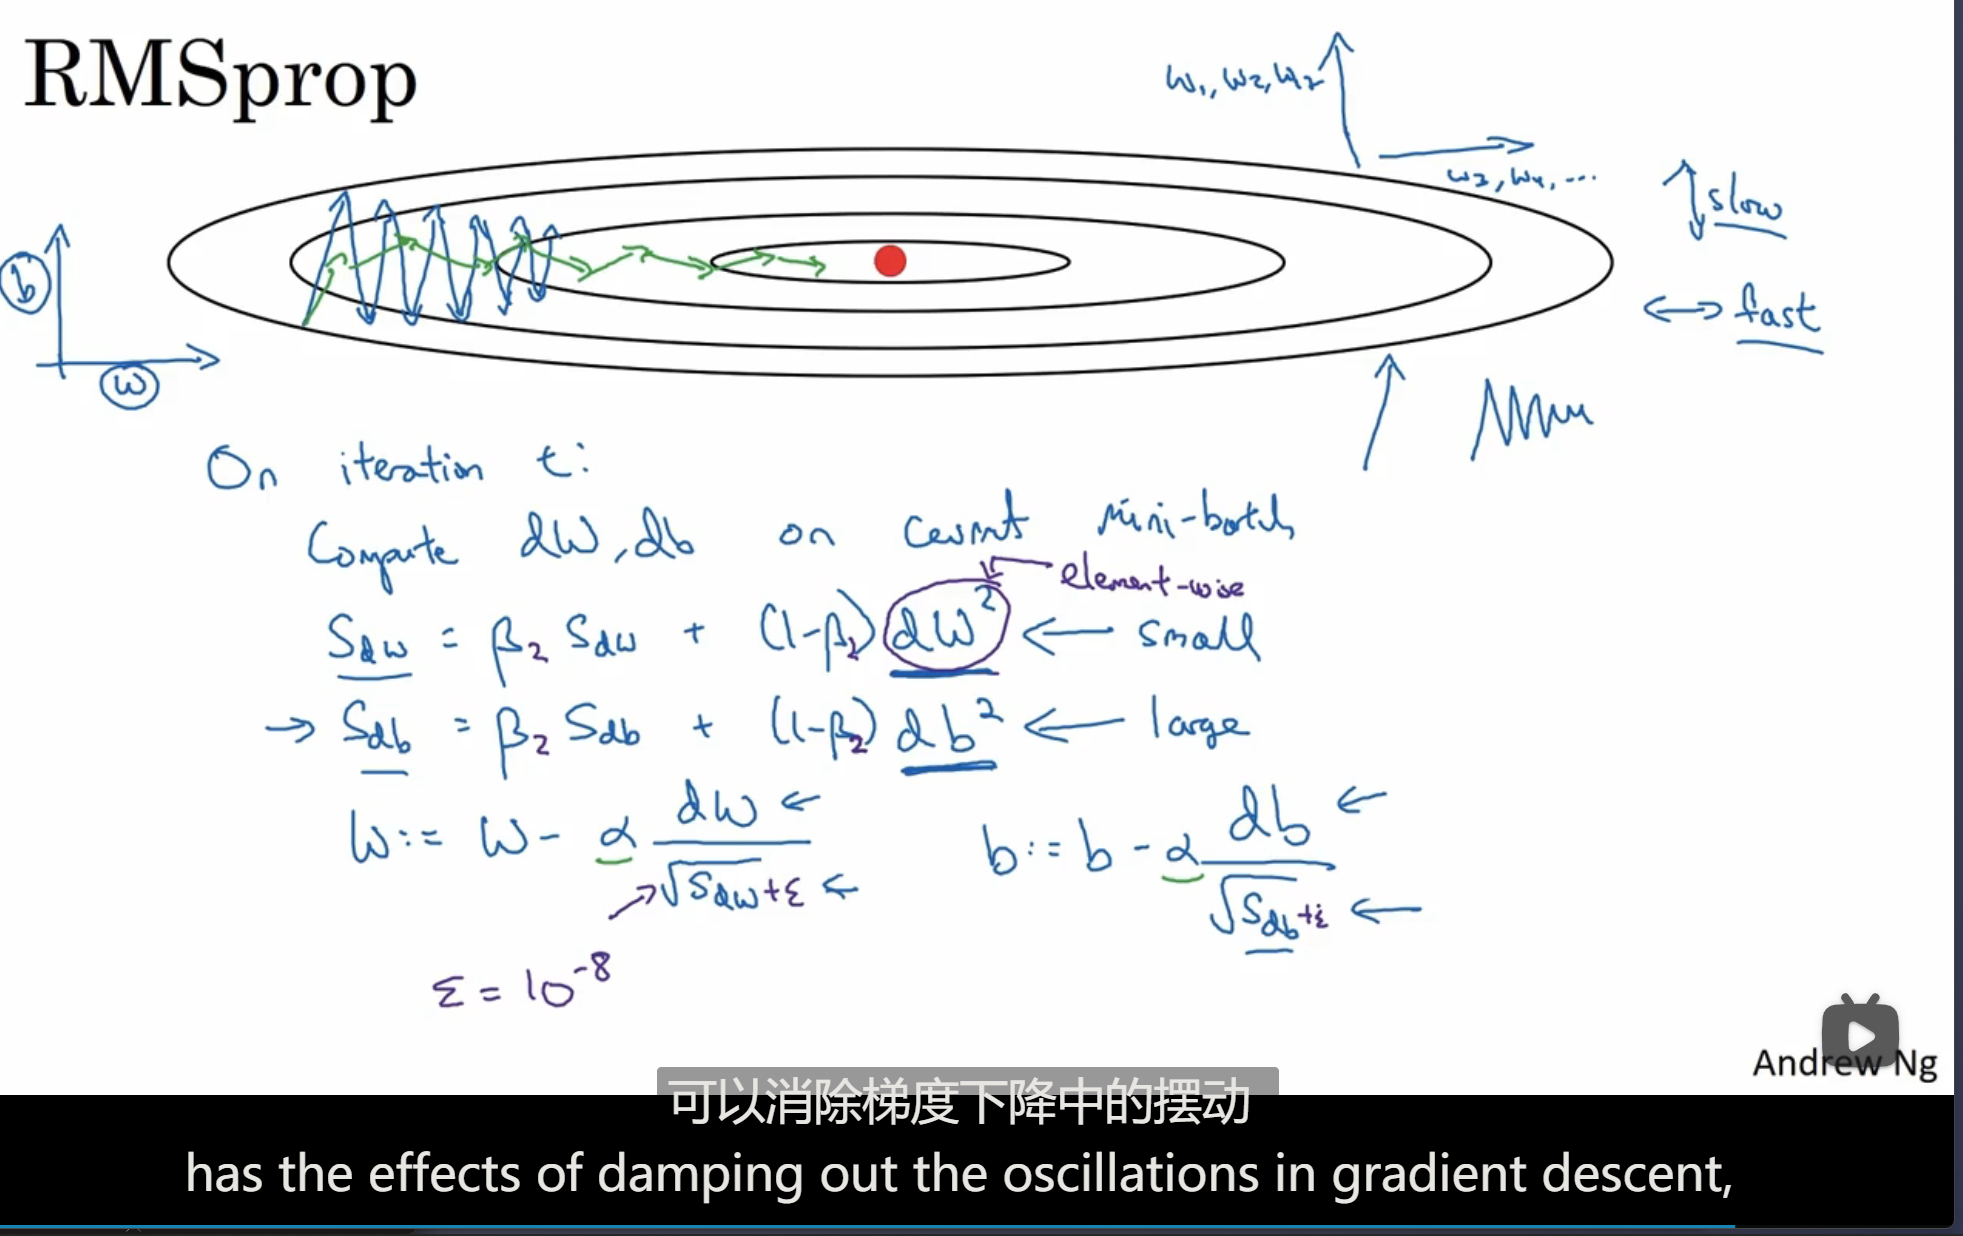 RMSprop
w₁, w₂, w₂
w₃, w₄, ...
slow
fast
b
w
On iteration t:
Compute dW, db on current mini-batch
element-wise
S_dw = β₂ S_dw + (1-β₂) dW² ← small
→ S_db = β₂ S_db + (1-β₂) db² ← large
w := w - α dw / √S_dw + ε ←
b := b - α db / √S_db + ε ←
ε = 10⁻⁸
Andrew Ng
可以消除梯度下降中的摆动
has the effects of damping out the oscillations in gradient descent,